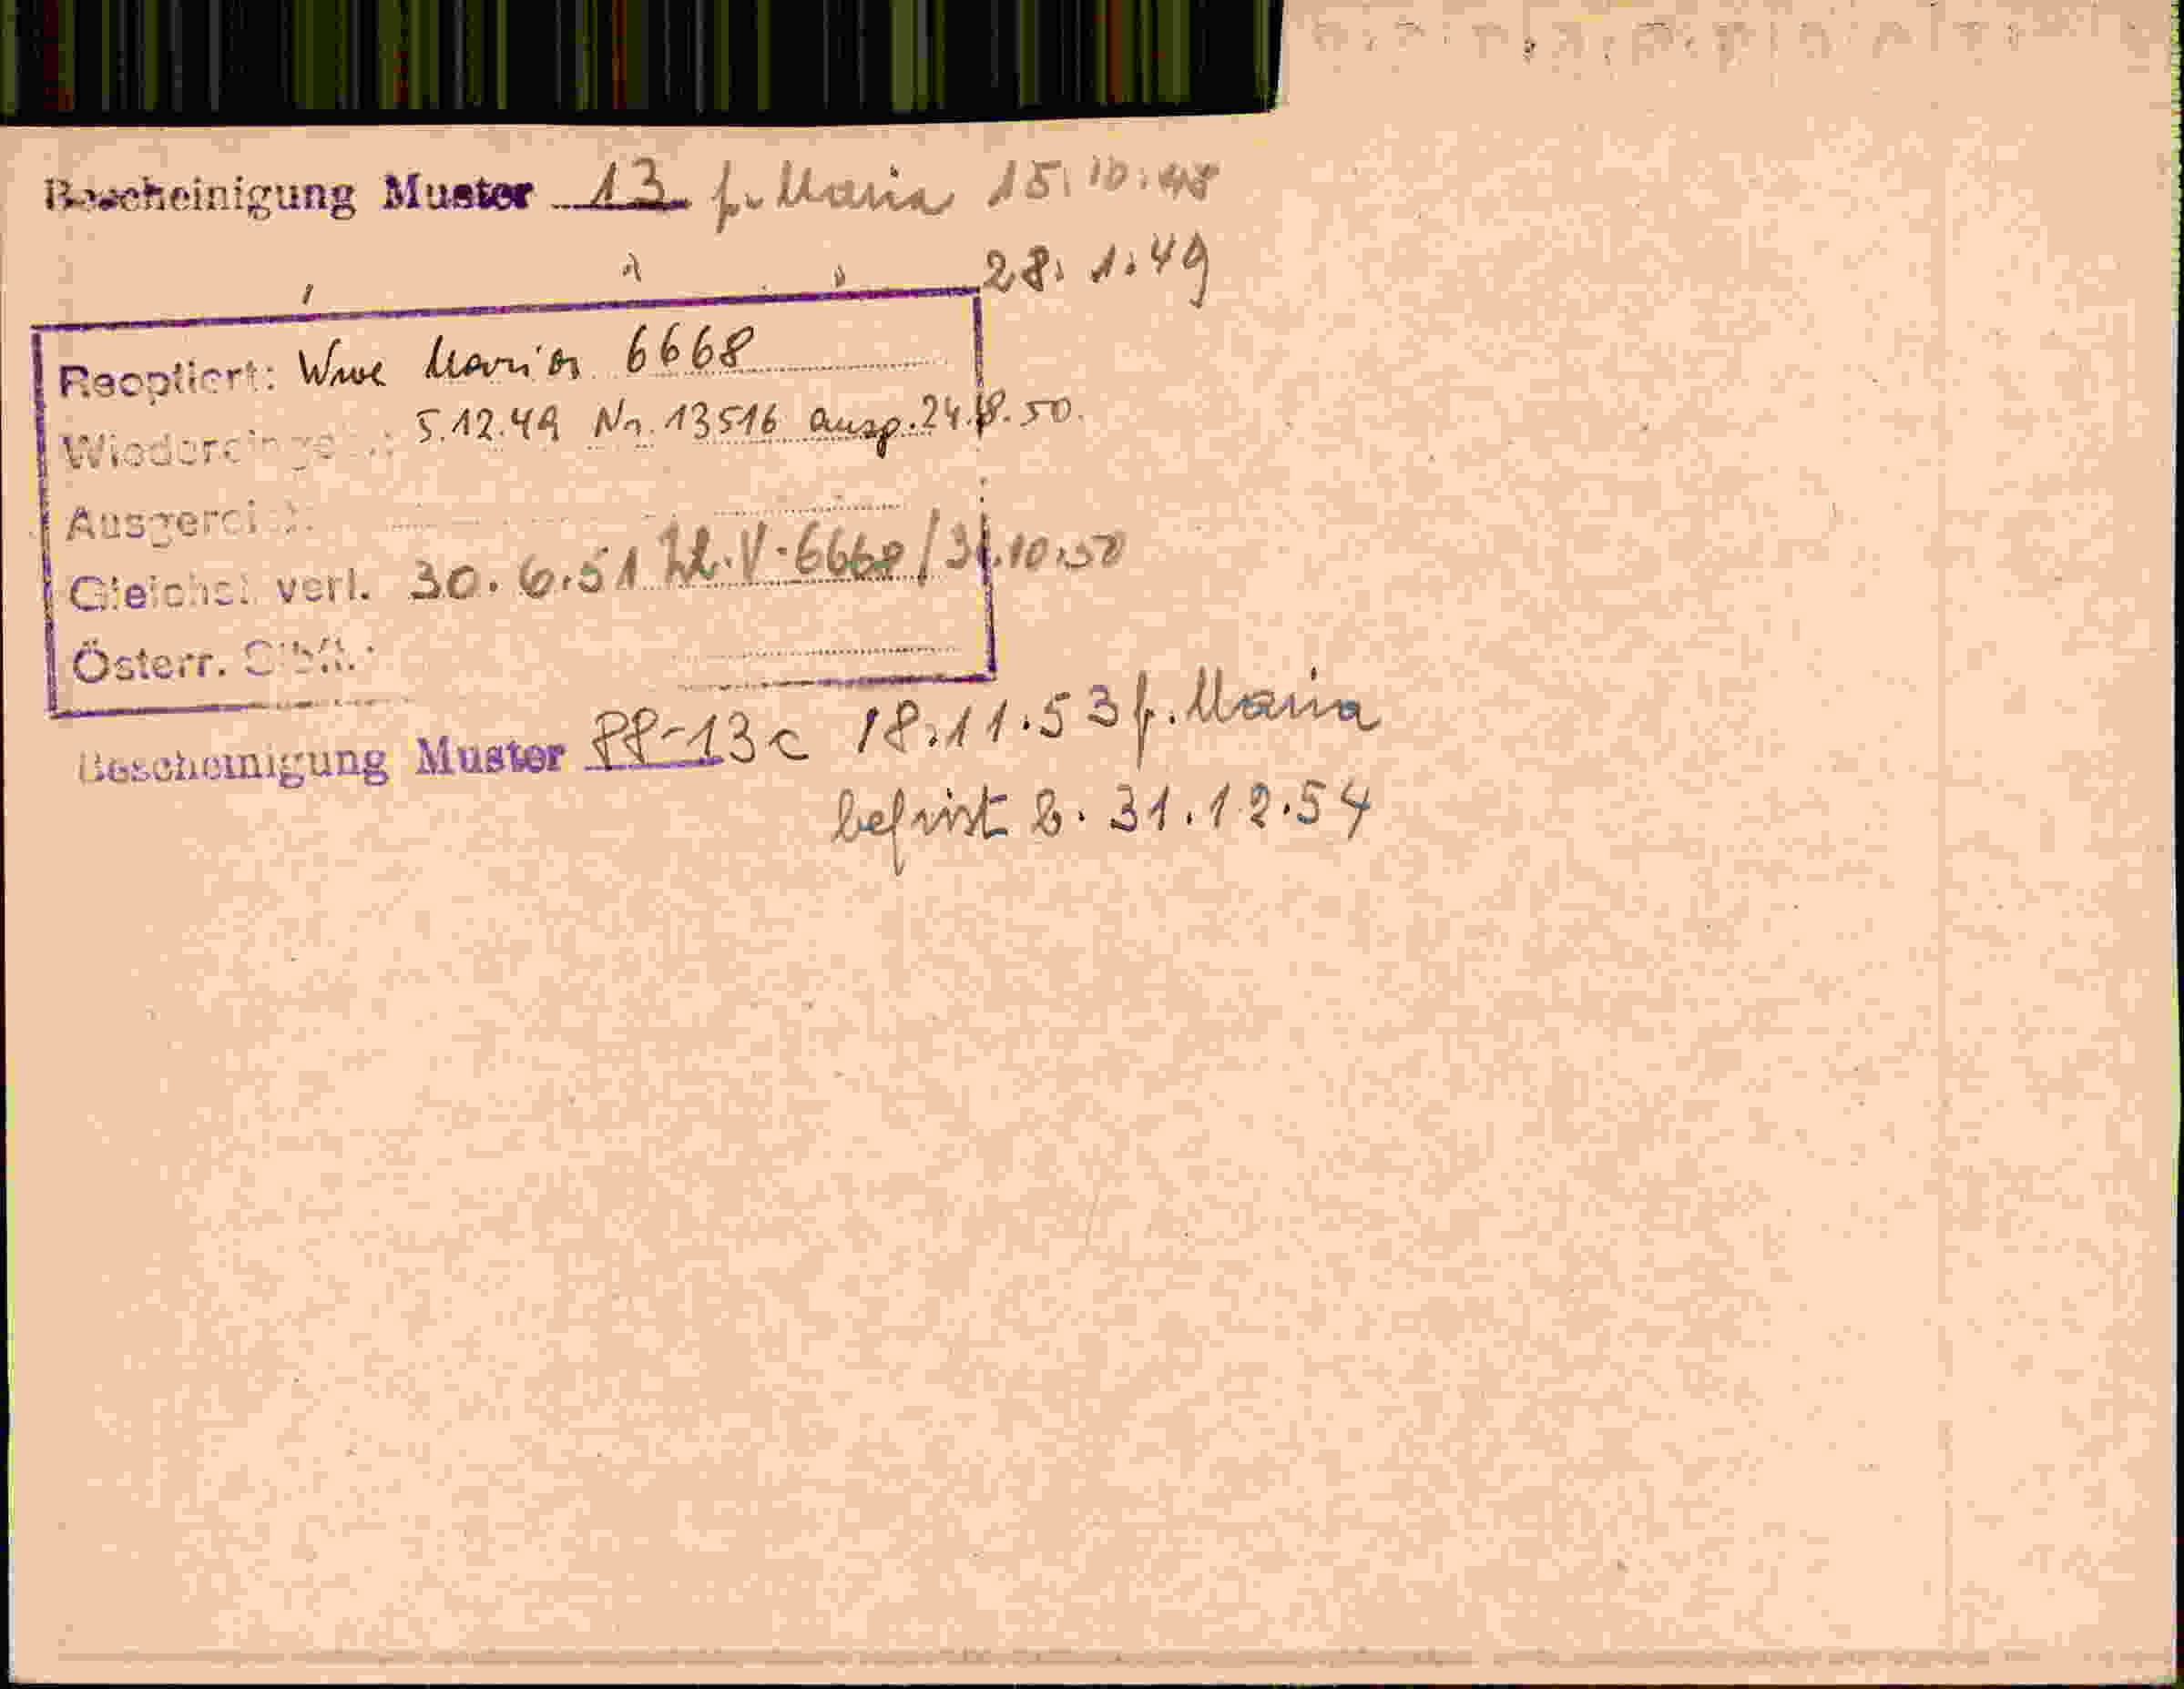 Bescheinigung Muster 13 f. Maria 15.10.48
" " " 28.1.49
Reoptiert: Wwe Maria 6668
5.12.49 Nr. 13516 ausg. 24.8.50.
Gleichst. verl. 30.6.51 Zl. V-6668/31.10.50
Österr.
Bescheinigung Muster PP-13c 18.11.53 f. Maria
befrist b. 31.12.54